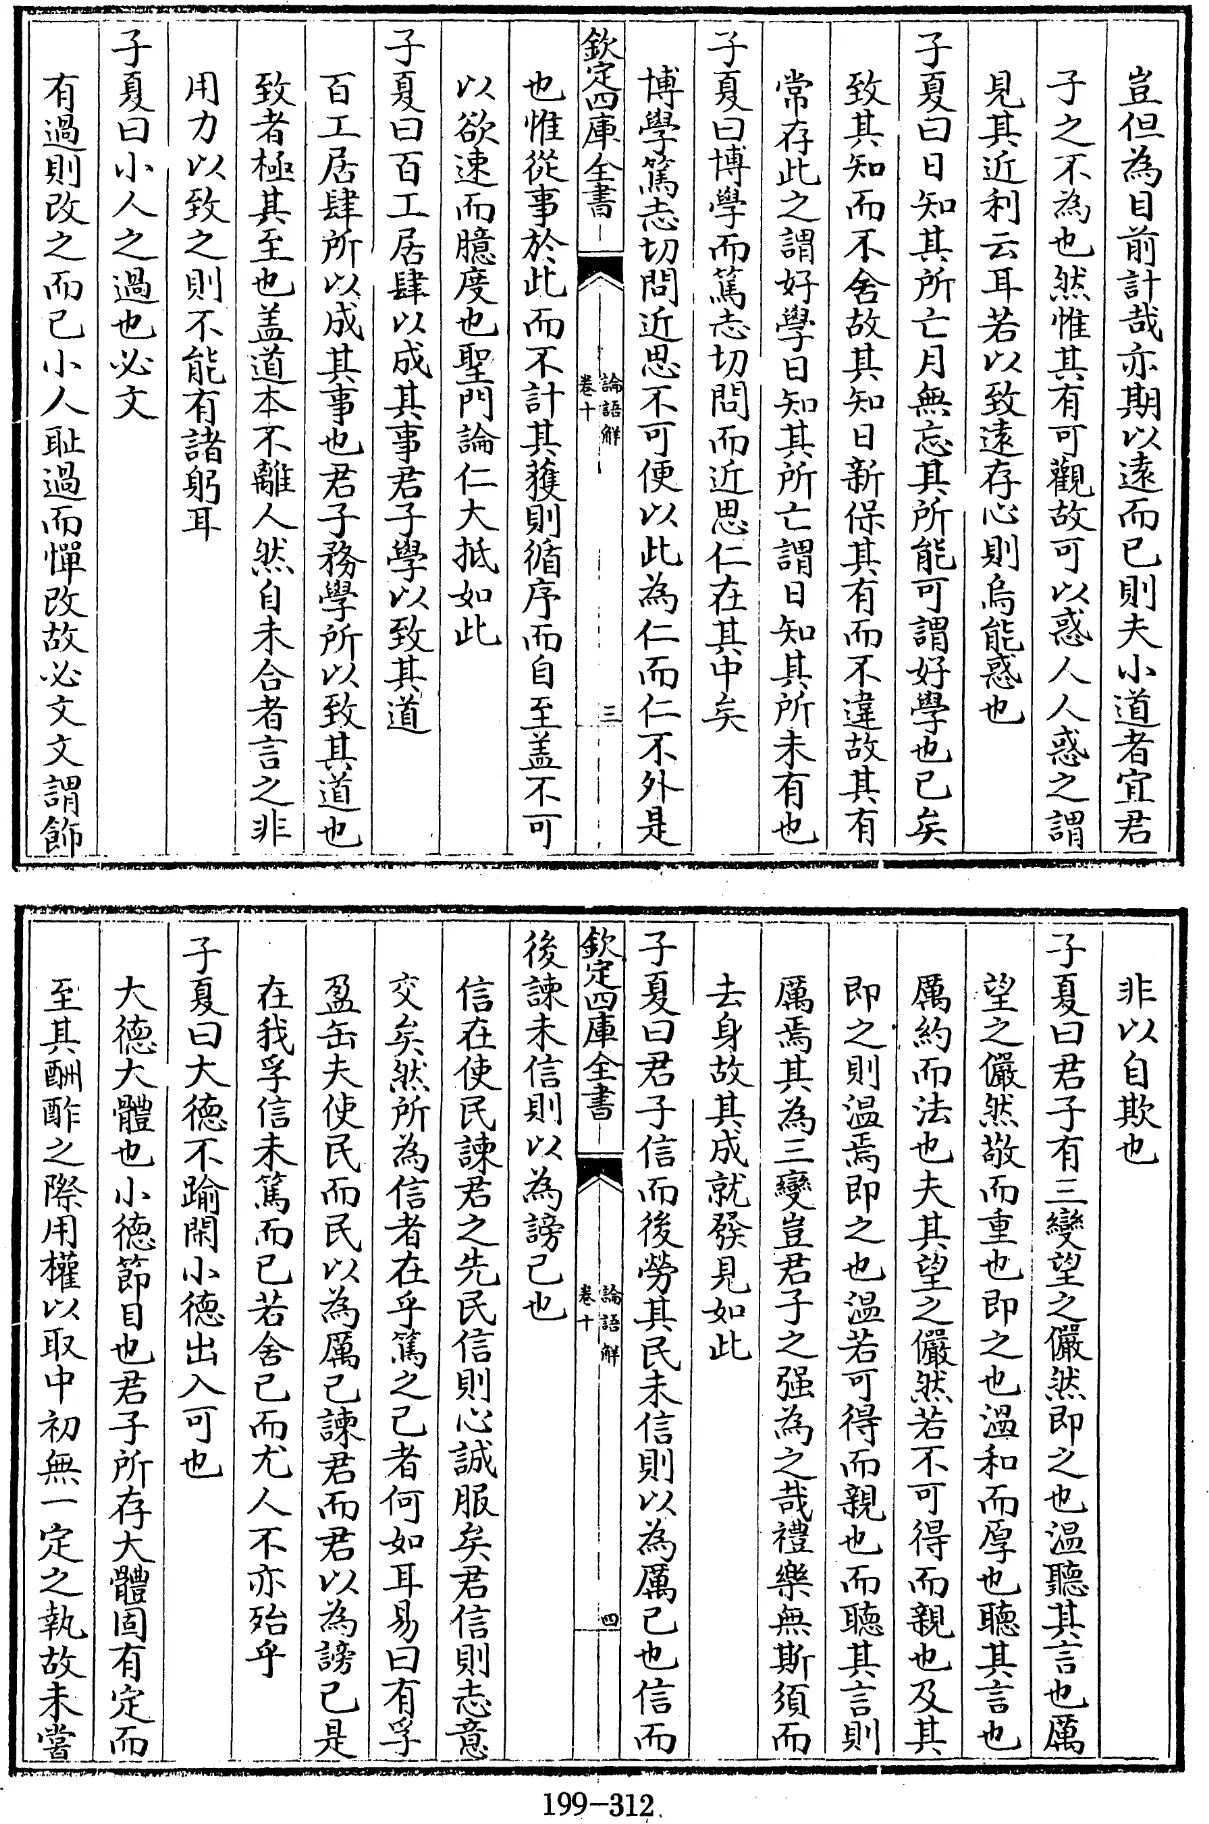 豈但為目前計哉亦期以遠而已則夫小道者宜君
子之不為也然惟其有可觀故可以惑人人惑之謂
見其近利云耳若以致遠存心則烏能惑也
子夏曰日知其所亡月無忘其所能可謂好學也已矣
致其知而不舍故其知日新保其有而不違故其有
常存此之謂好學日知其所亡謂日知其所未有也
子夏曰博學而篤志切問而近思仁在其中矣
博學篤志切問近思不可便以此為仁而仁不外是
欽定四庫全書
論語解
卷十
三
也惟從事於此而不計其獲則循序而自至盖不可
以欲速而臆度也聖門論仁大抵如此
子夏曰百工居肆以成其事君子學以致其道
百工居肆所以成其事也君子務學所以致其道也
致者極其至也盖道本不離人然自未合者言之非
用力以致之則不能有諸躬耳
子夏曰小人之過也必文
有過則改之而已小人耻過而憚改故必文文謂飾
非以自欺也
子夏曰君子有三變望之儼然即之也溫聽其言也厲
望之儼然敬而重也即之也溫和而厚也聽其言也
厲約而法也夫其望之儼然若不可得而親也及其
即之則溫焉即之也溫若可得而親也而聽其言則
厲焉其為三變豈君子之强為之哉禮樂無斯須而
去身故其成就發見如此
子夏曰君子信而後勞其民未信則以為厲己也信而
欽定四庫全書
論語解
卷十
四
後諫未信則以為謗己也
信在使民諫君之先民信則心誠服矣君信則志意
交矣然所為信者在乎篤之己者何如耳易曰有孚
盈缶夫使民而民以為厲己諫君而君以為謗己是
在我孚信未篤而已若舍己而尤人不亦殆乎
子夏曰大德不踰閑小德出入可也
大德大體也小德節目也君子所存大體固有定而
至其酬酢之際用權以取中初無一定之執故未嘗
199-312